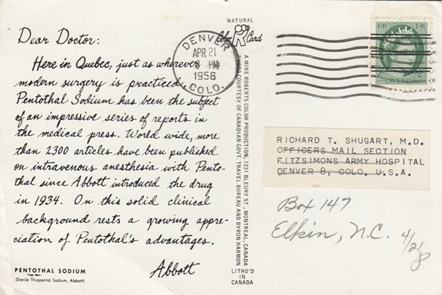 Dear Doctor:
Here in Quebec, just as wherever
modern surgery is practiced,
Pentothal Sodium has been the subject
of an impressive series of reports in
the medical press. World wide, more
than 2300 articles have been published
on intravenous anesthesia with Pento-
thal since Abbott introduced the drug
in 1934. On this solid clinical
background rests a growing appre-
ciation of Pentothal's advantages.
Abbott
PENTOTHAL SODIUM
(Sterile Thiopental Sodium, Abbott)
NATURAL
Color Card
A MIKE ROBERTS COLOR PRODUCTION,
COURTESY OF CANADIAN GOVT. TRAVEL BUREAU AND BYRON HARMON
LITHO'D IN
CANADA
DENVER
APR 21
PM
1956
COLO.
RICHARD T. SHUGART, M.D.
OFFICERS MAIL SECTION
FITZSIMONS ARMY HOSPITAL
DENVER 8, COLO, U.S.A.
Box 147
Elkin, N.C.